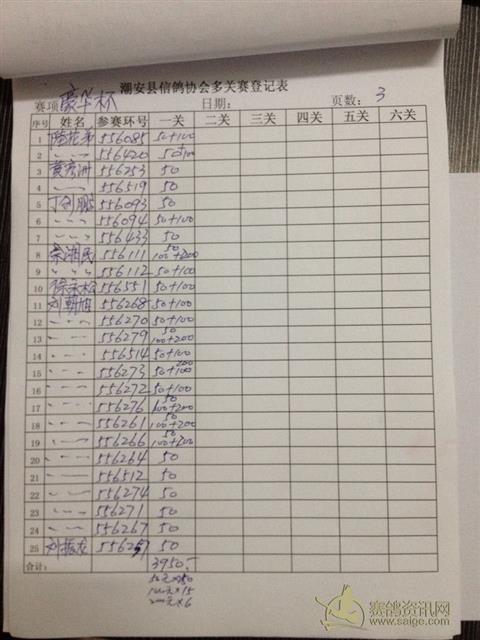 潮安县信鸽协会多关赛登记表
赛项 豪华杯 日期: 页数: 3
序号 姓名 参赛环号 一关 二关 三关 四关 五关 六关
1 556085 50+100
2 〃 556420 50+100
3 黄秀洲 556253 50
4 〃 556519 50
5 丁剑鹏 556093 50
6 〃 556094 50+100
7 〃 556433 50
8 余湘民 556111 50 100+200
9 〃 556112 50+100
10 徐永松 556551 50+100
11 刘朝旭 556268 50+100
12 〃 556270 50+100
13 〃 556279 50 100+200
14 〃 556514 50+100
15 〃 556273 50+100 200
16 〃 556272 50+100
17 〃 556276 50 100+200
18 〃 556261 50 100+200
19 〃 556266 50 100+200
20 〃 556264 50
21 〃 556512 50
22 〃 556274 50
23 〃 556271 50
24 〃 556267 50
25 刘振友 556257 50
合计: 3950.-
50元×
100元×15
200元×6
赛鸽资讯网
www.saige.com